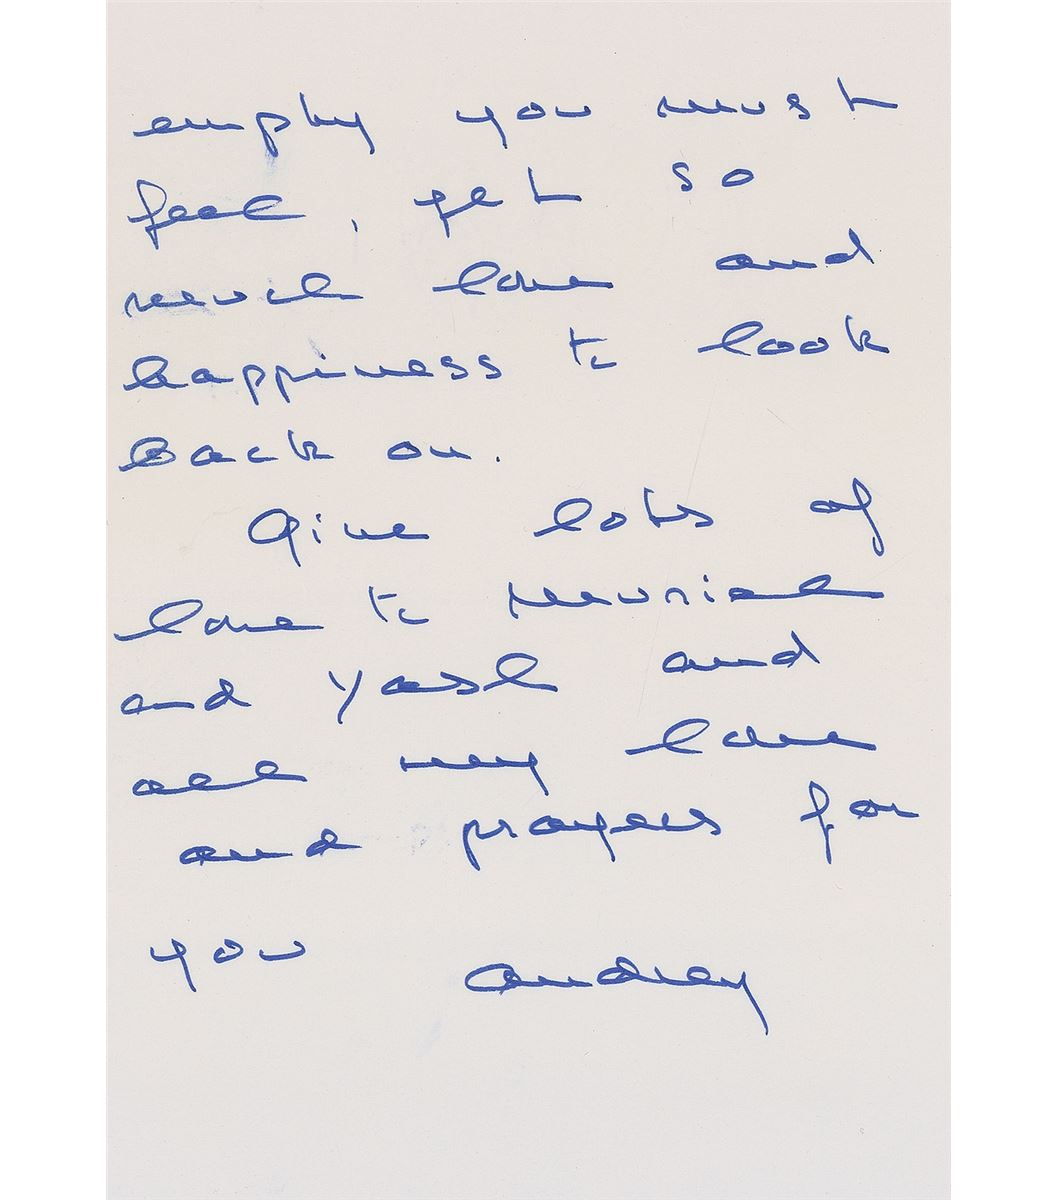 empty you must
feel, yet so
much love and
happiness to look
back on.
Give lots of
love to muriel
and Yash and
all my love
and prayers for
you Audrey